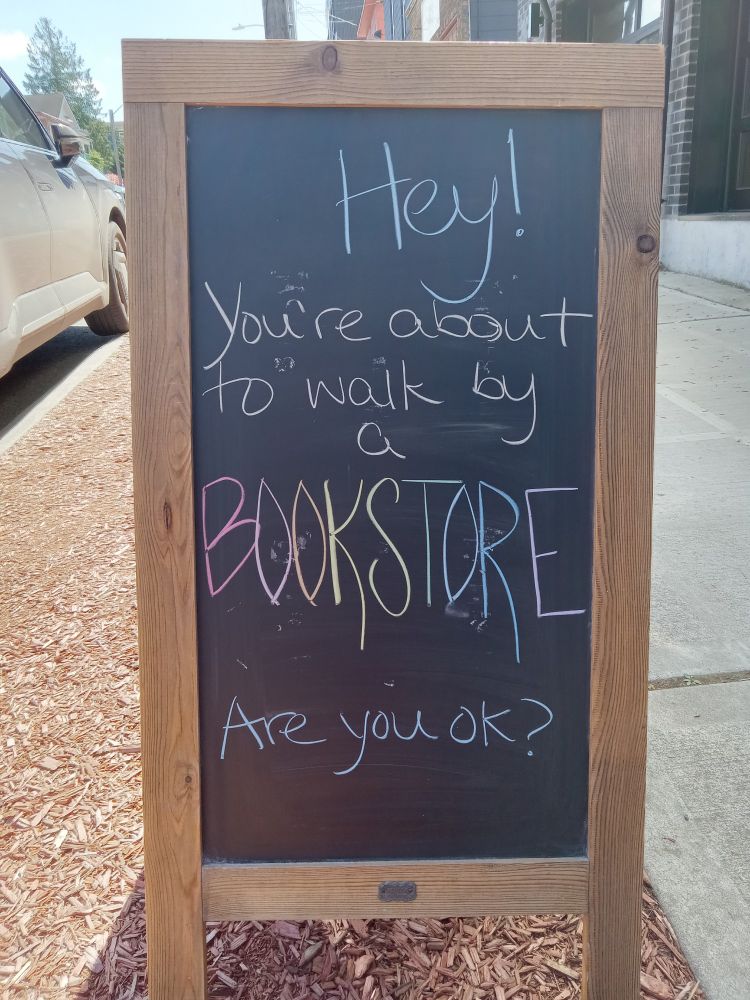 Hey!
You're about
to walk by
a
BOOKSTORE
Are you ok?